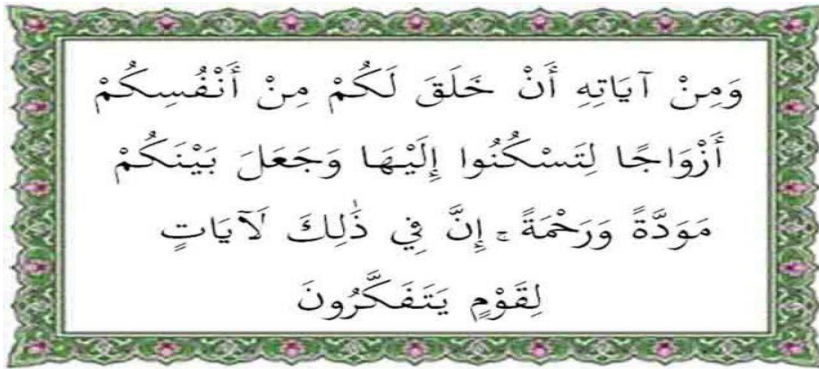 وَمِنْ آيَاتِهِ أَنْ خَلَقَ لَكُمْ مِنْ أَنْفُسِكُمْ
أَزْوَاجًا لِتَسْكُنُوا إِلَيْهَا وَجَعَلَ بَيْنَكُمْ
مَوَدَّةً وَرَحْمَةً ۚ إِنَّ فِي ذَٰلِكَ لَآيَاتٍ
لِقَوْمٍ يَتَفَكَّرُونَ